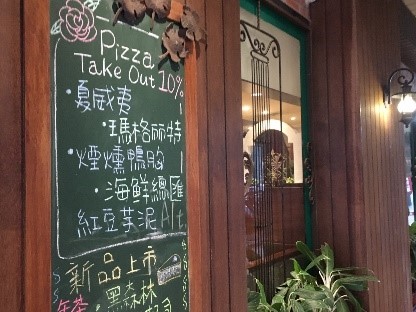 Pizza
Take Out 10%
·夏威夷
·瑪格丽特
·煙燻鴨胸
·海鮮總匯
紅豆芋泥
新品上市
·黑森林